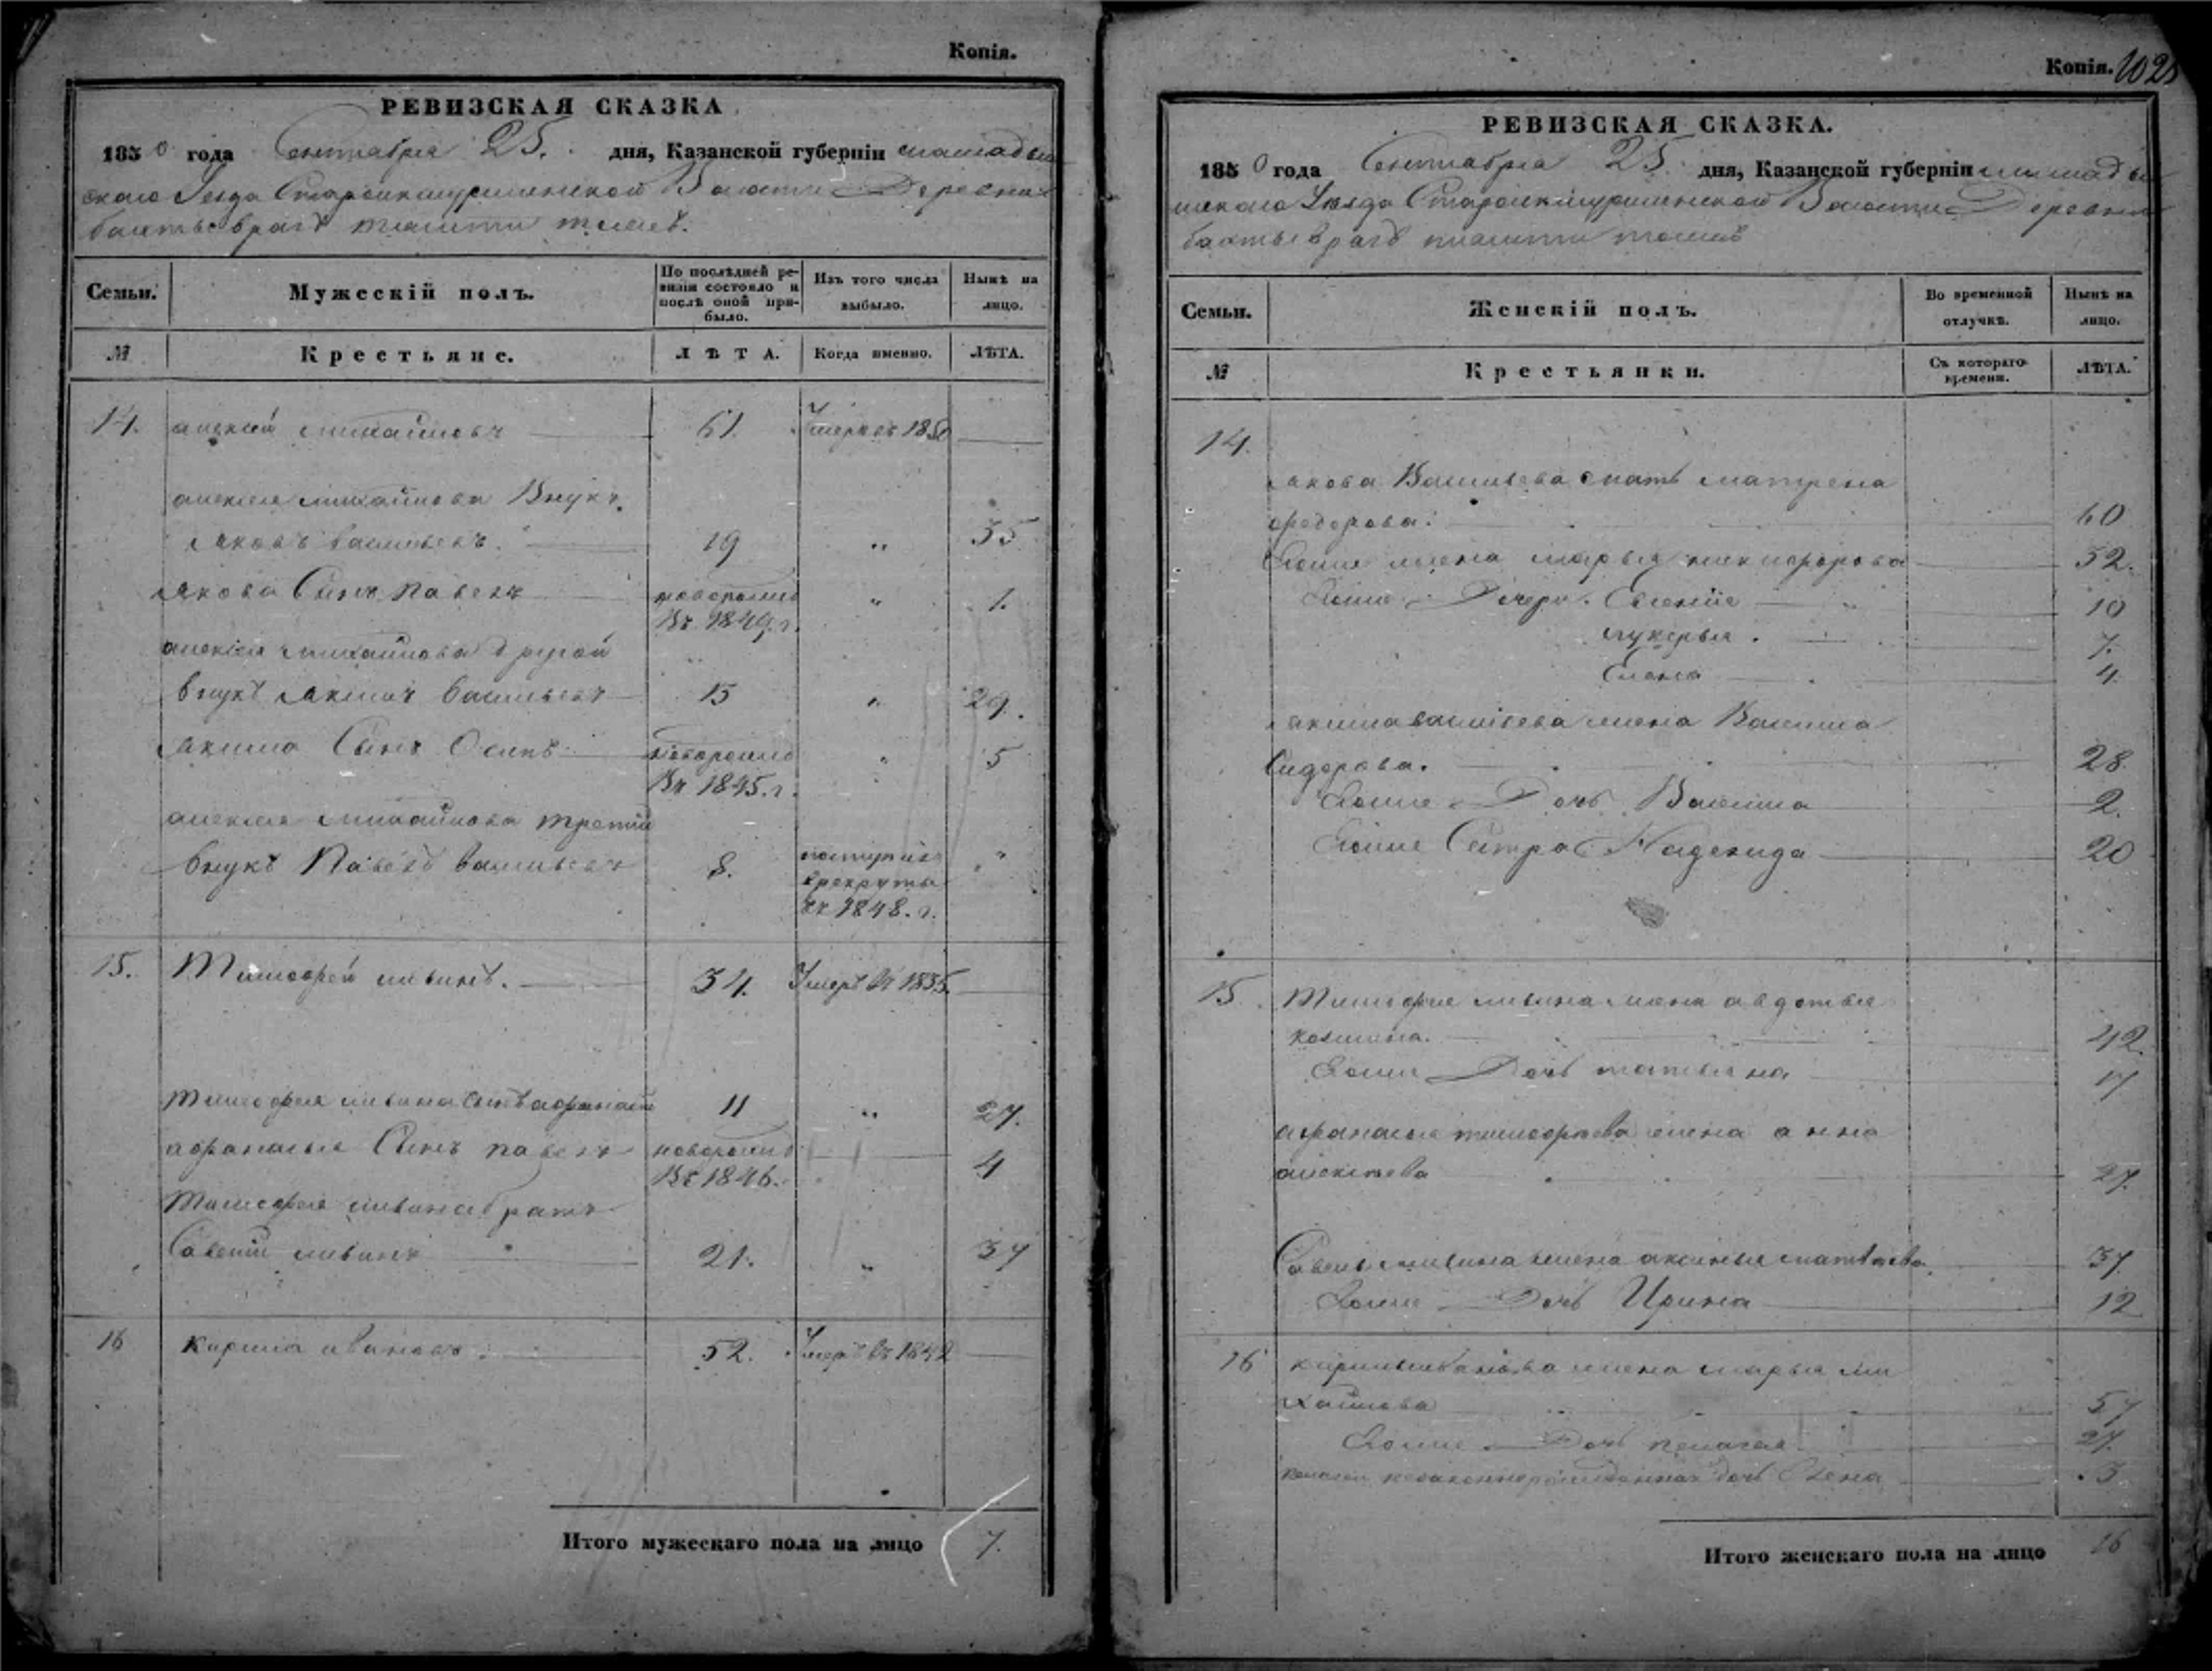 Копія.
РЕВИЗСКАЯ СКАЗКА
1850 года Сентября 25. дня, Казанской губерніи
скаго Уезда Волости Деревни
Семьи.
Мужескій полъ.
По послѣдней ре-
визіи состояло и
послѣ оной при-
было.
Изъ того числа
выбыло.
Нынѣ на
лицо.
№
Крестьяне.
ЛѢТА.
Когда именно.
ЛѢТА.
14. алексѣй михайловъ 61. Умеръ въ 1850
алексея михайлова Внукъ
яковъ васильевъ. 19 " 35
якова Сынъ павелъ новорожд " 1.
Въ 1849. г.
алексея михайлова другой
внукъ якимъ васильевъ 15 " 29.
якима Сынъ Осипъ новорожд " 5
Въ 1845. г.
алексея михайлова третий
внукъ Павелъ васильевъ 8. поступилъ "
в рекруты
въ 1848. г.
15. Тимофей ливинъ. 34. Умеръ въ 1835.
Тимофея ливина сынъ афанасий 11 " 27.
афанасья Сынъ павелъ новорожд 4
Въ 1846.
Тимофея ливина братъ
Савелий ливинъ 21. " 37
16 кирила ивановъ 52. Умеръ въ 1842
Итого мужескаго пола на лицо 7.
Копія. 102
РЕВИЗСКАЯ СКАЗКА.
1850 года Сентября 25. дня, Казанской губерніи
Уезда Волости Деревни
Семьи.
Женскій полъ.
Во временной
отлучкѣ.
Нынѣ на
лицо.
№
Крестьянки.
Съ котораго
времени.
ЛѢТА.
14.
якова Васильева мать матрена
федорова. 60
Ево же жена марья никифорова 32.
Ево же Дочери. 10
лукерья. 7.
Елена 4.
якима васильева жена
сидорова. 28
Ево же Дочь 2.
Ево же Сестра Надежда 20
15. Тимофея ливина жена авдотья
козмина. 42.
Ево же Дочь татьяна 17
афанасья тимофеева жена анна
алексеева 27.
Савелья ливина жена аксинья матвеева 37.
Ево же Дочь Ирина 12
16 кирилы иванова жена марья ми
хайлова 57
Ево же Дочь пелагея 27.
пелагеи незаконнорожденная дочь Елена 3
Итого женскаго пола на лицо 16